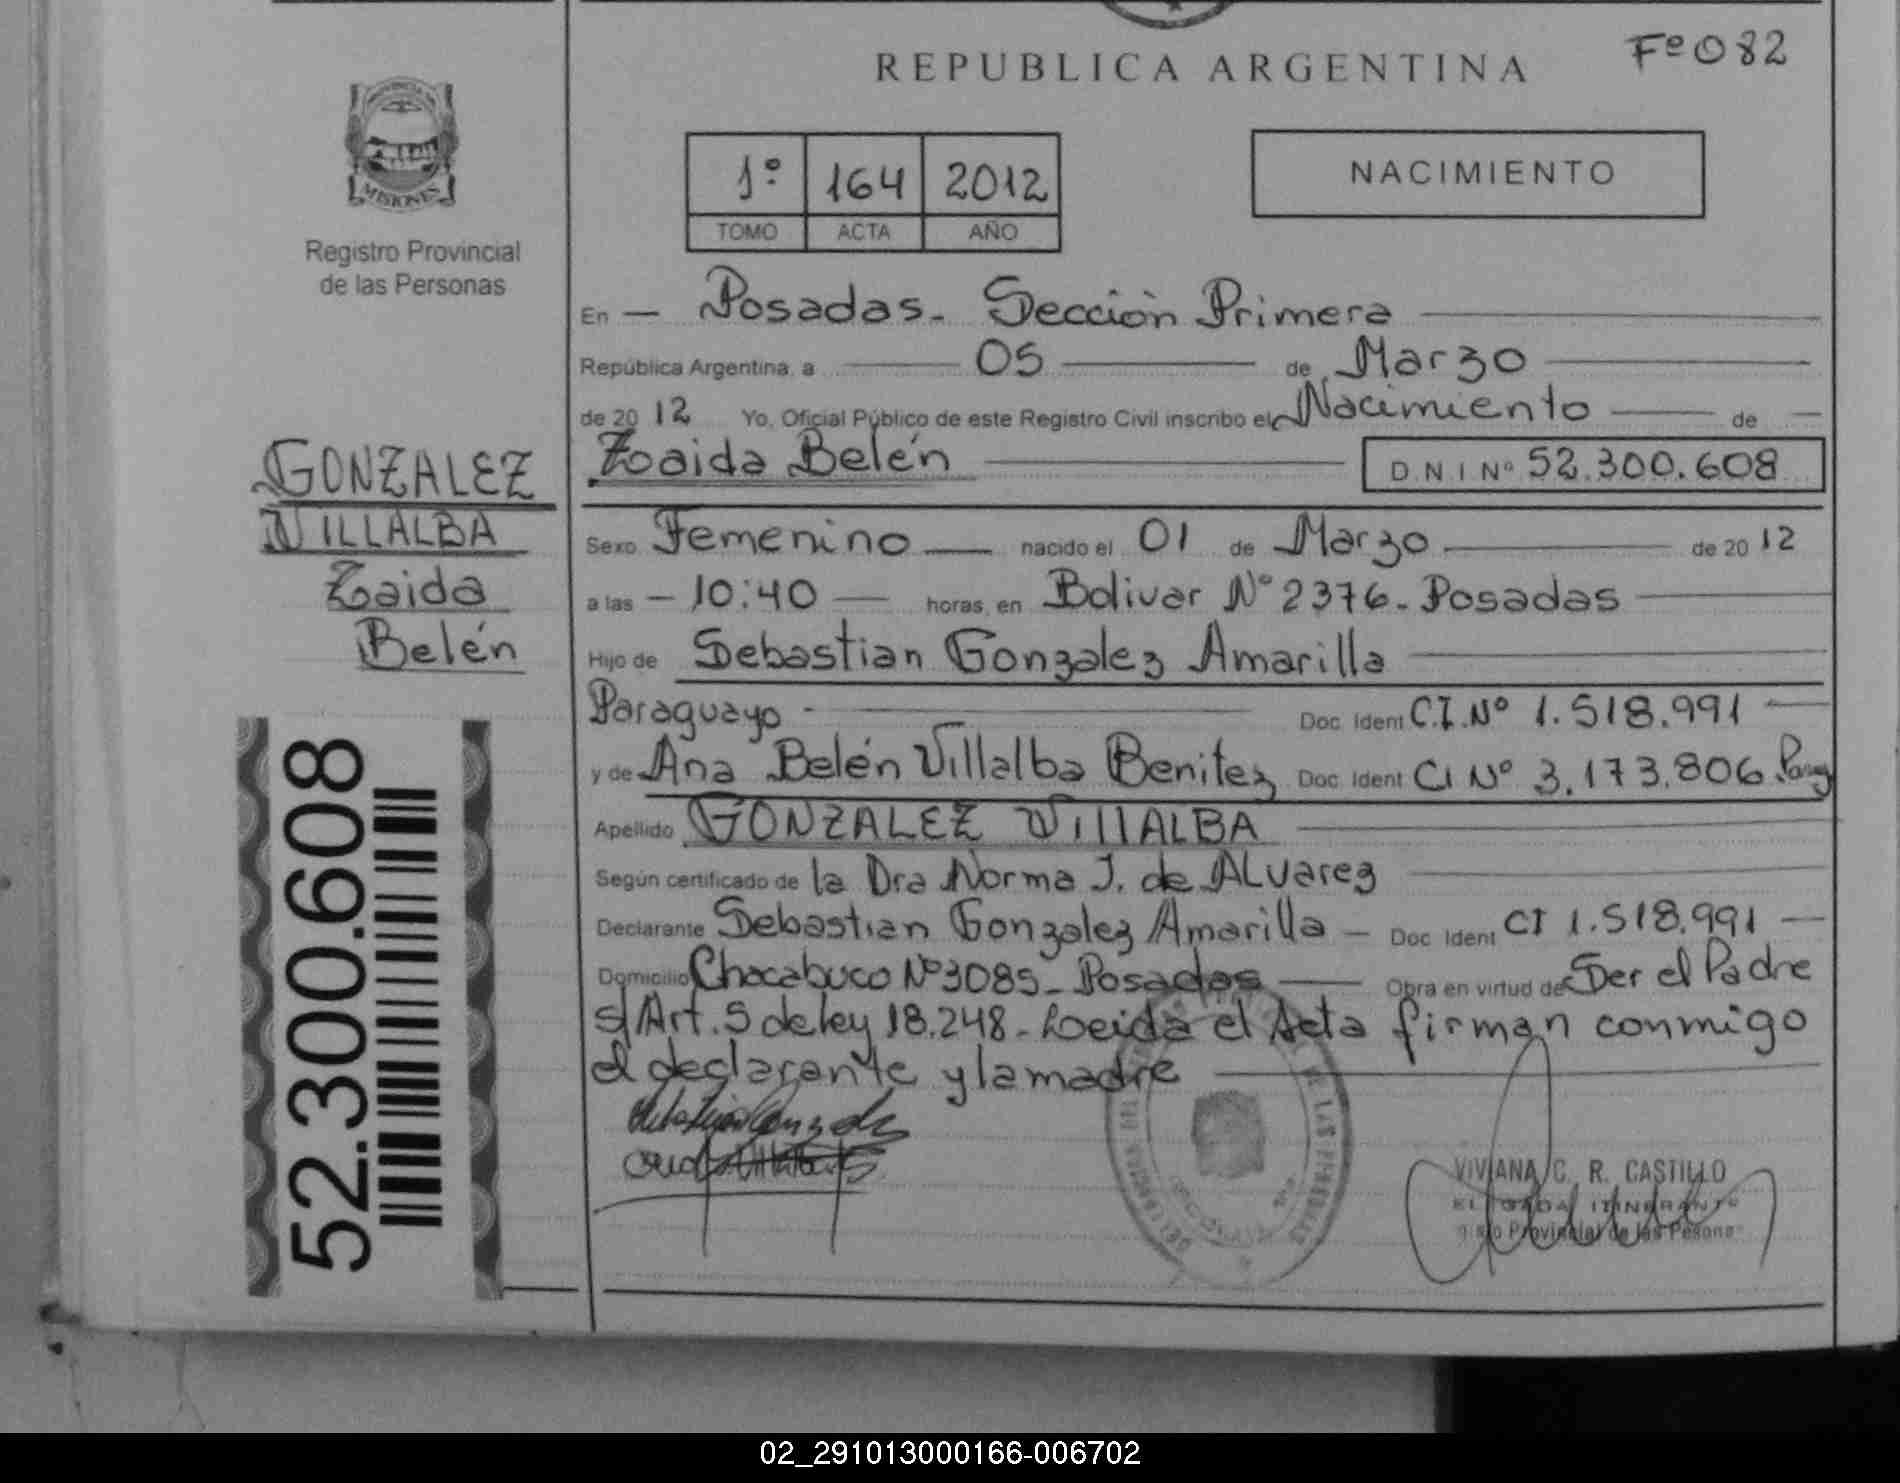 REPUBLICA ARGENTINA
Fº 082
MISIONES
Registro Provincial
de las Personas
1º 164 2012
TOMO ACTA AÑO
NACIMIENTO
En — Posadas - Sección Primera
República Argentina, a 05 de Marzo
de 2012 Yo, Oficial Público de este Registro Civil inscribo el Nacimiento de
Zaida Belén D.N.I Nº 52.300.608
GONZALEZ
VILLALBA
Zaida
Belén
Sexo Femenino nacido el 01 de Marzo de 2012
a las — 10:40 — horas, en Bolivar Nº 2376 - Posadas
Hijo de Sebastian Gonzalez Amarilla
Paraguayo - Doc Ident C.I.Nº 1.518.991
y de Ana Belén Villalba Benitez Doc Ident CI Nº 3.173.806 Parag
Apellido GONZALEZ VILLALBA
Según certificado de la Dra Norma J. de ALvarez
Declarante Sebastian Gonzalez Amarilla — Doc Ident CI 1.518.991
Domicilio Chacabuco Nº3085 - Posadas Obra en virtud de Ser el Padre
s/Art. 5 de ley 18.248 - Leida el Acta firman conmigo
el declarante y la madre
52.300.608
VIVIANA C. R. CASTILLO
ITINERANTE
Provincial de las
02_291013000166-006702